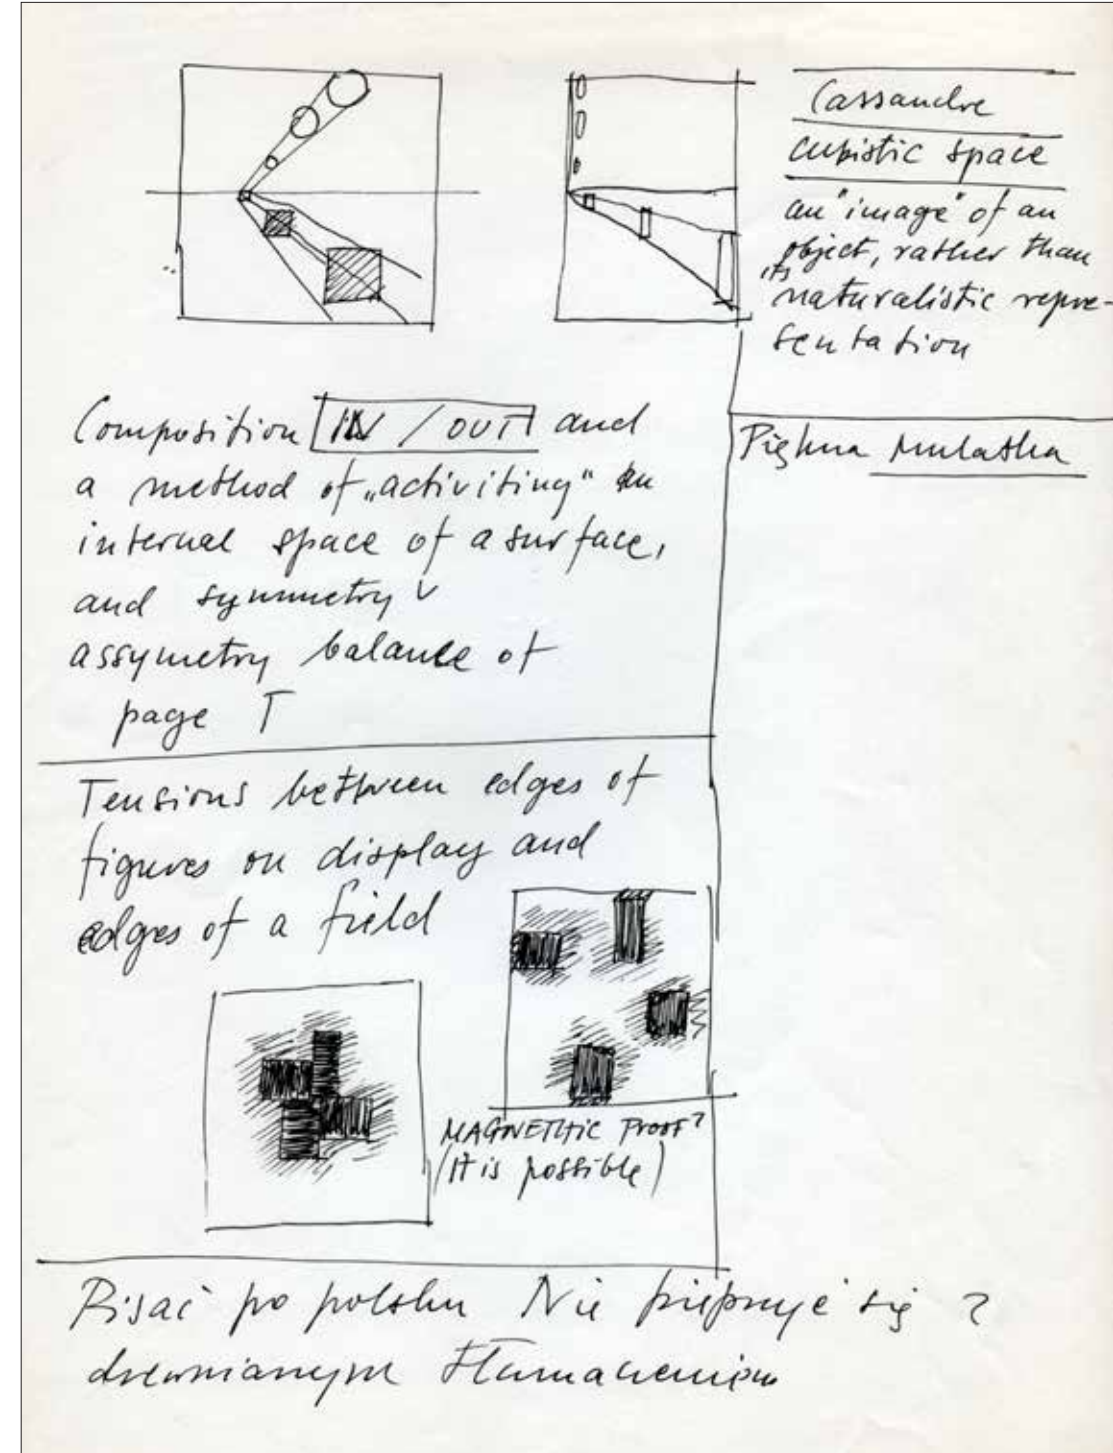 Cassandre
cubistic space
an "image" of an
object, rather than
its
naturalistic repre-
sentation
Composition IN / OUT and
a method of „activiting" an
internal space of a surface,
and symmetry v
assymetry balance of
page T
Piękna Mulatka
Tensions between edges of
figures on display and
edges of a field
MAGNETIC PROOF?
(It is possible)
Pisać po polsku Nie pieprzyć się z
drewnianym tłumaczeniem